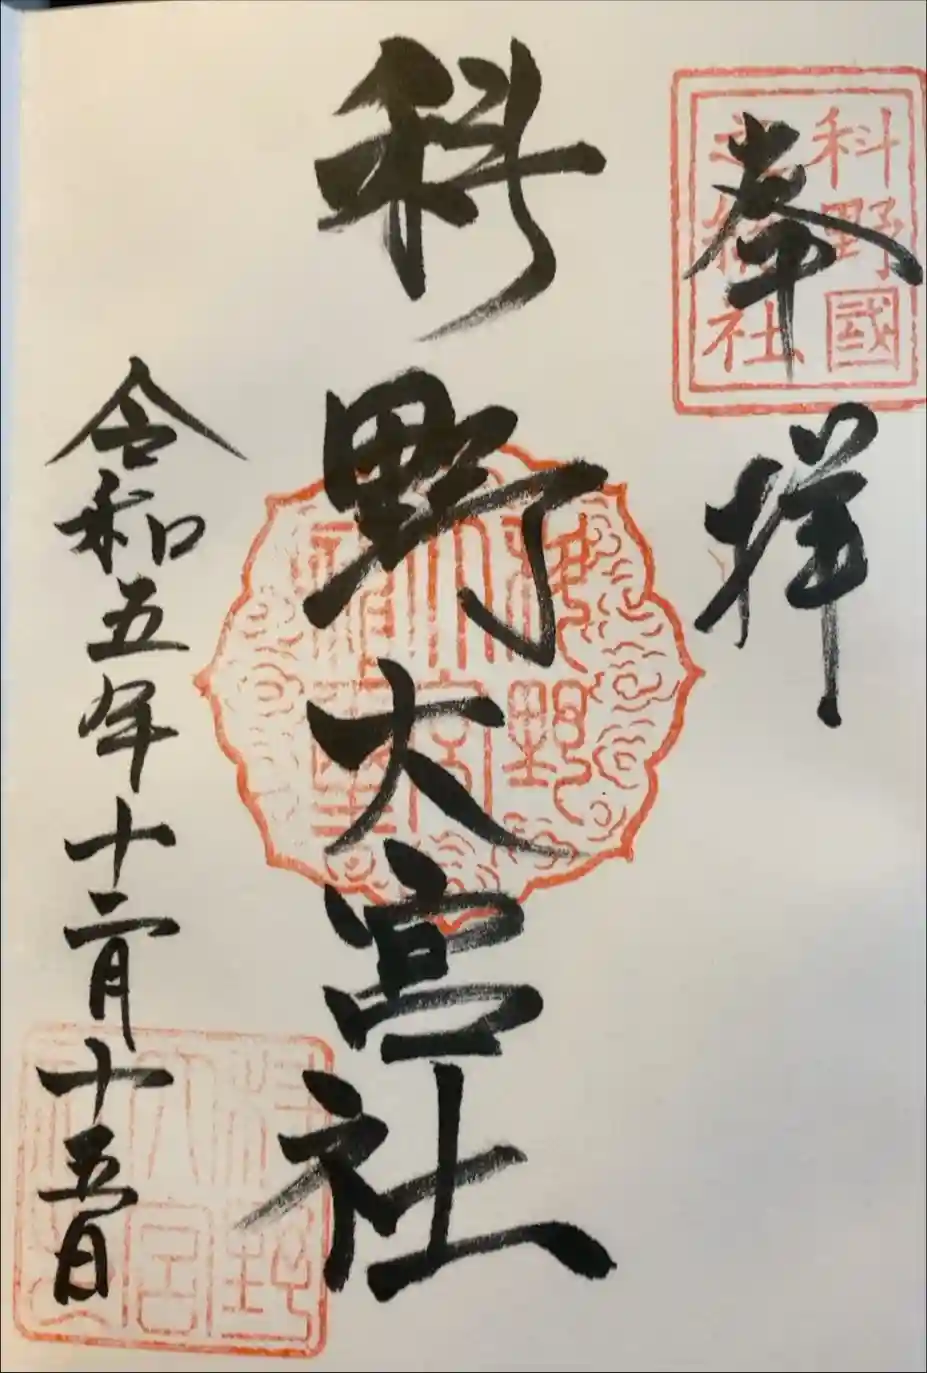 奉拝
科野國
之総社
科野大宮社
令和五年十二月十五日